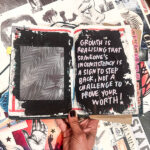 GROWTH IS
REALISING THAT
SOMEONE'S
INCONSISTENCY IS
A SIGN TO STEP
BACK, NOT A
CHALLENGE TO
PROVE YOUR
WORTH!